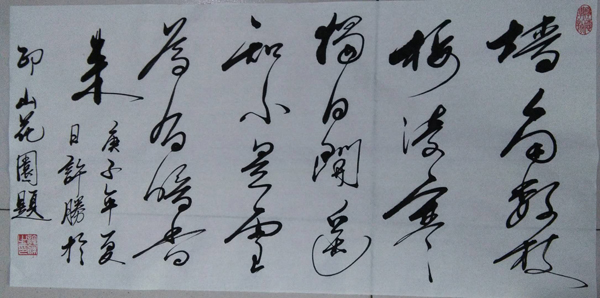 墙角数枝
梅凌寒
獨自開遥
知不是雪
為有暗香
来
庚子年夏
日許勝於
邙山花園題